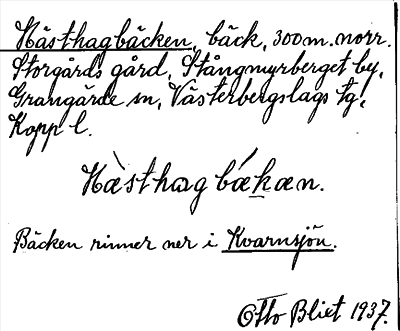 Hästhagbäcken, bäck, 300 m. norr.
Storgårds gård, Stångmyrberget by,
Grangärde sn, Västerbergslags tg,
Kopp l.
Hæ̀sthag bǽḵæn.
Bäcken rinner ner i Kvarnsjön.
Otto Bliet 1937.